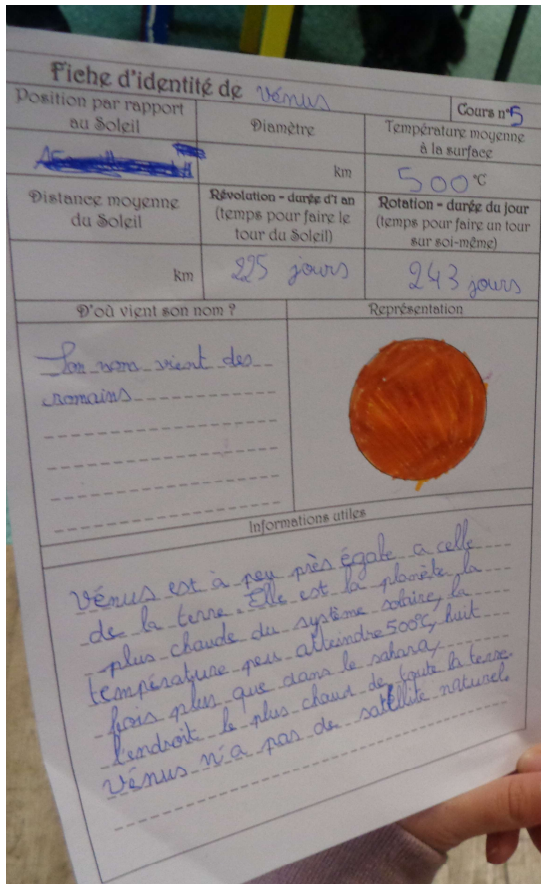 Fiche d'identité de Vénus
Cours n°5
Position par rapport
au Soleil
Diamètre
km
Température moyenne
à la surface
500 °C
Distance moyenne
du Soleil
km
Révolution - durée d'1 an
(temps pour faire le
tour du Soleil)
225 jours
Rotation - durée du jour
(temps pour faire un tour
sur soi-même)
243 jours
D'où vient son nom ?
Son nom vient des
romains
Représentation
Informations utiles
Vénus est à peu près égale a celle
de la terre. Elle est la planète la
plus chaude du système solaire, la
température peus atteindre 500°C, huit
fois plus que dans le sahara,
l'endroit le plus chaud de toute la terre.
Vénus n'a pas de satellite naturel.